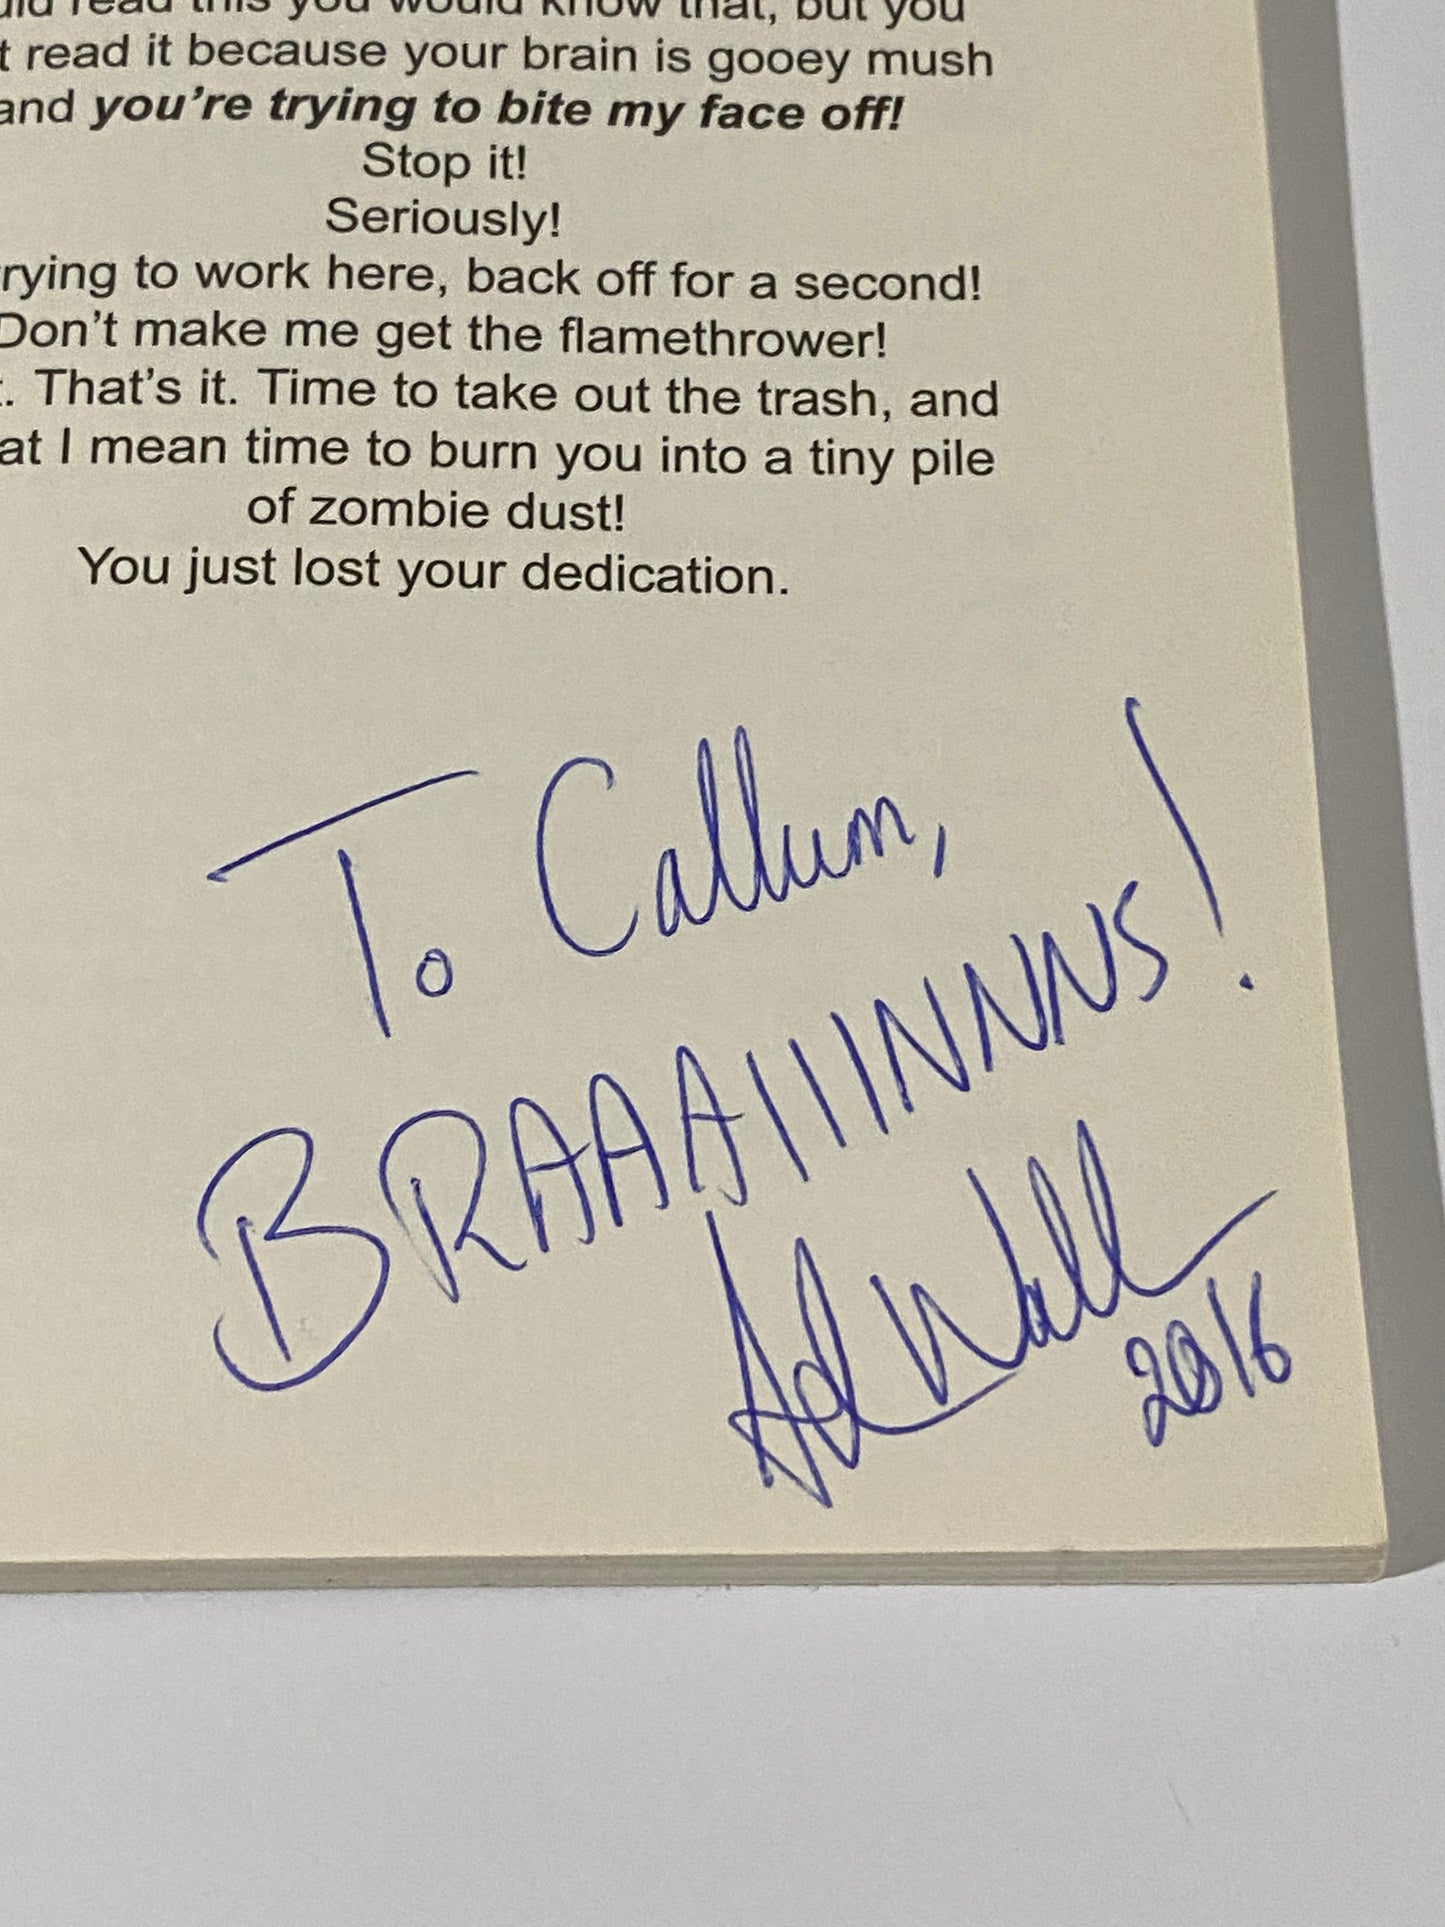 read this you would know that, but you
read it because your brain is gooey mush
and you're trying to bite my face off!
Stop it!
Seriously!
rying to work here, back off for a second!
Don't make me get the flamethrower!
. That's it. Time to take out the trash, and
at I mean time to burn you into a tiny pile
of zombie dust!
You just lost your dedication.
To Callum,
BRAAAIIINNNS!
2016